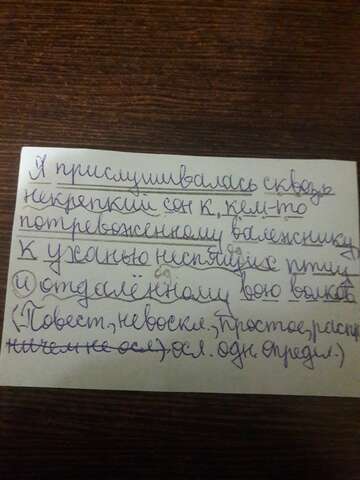 Я прислушивалась сквозь
некрепкий сон к кем-то
потревоженному валежнику,
к уханью неспящих птиц
и отдалённому вою волков
(Повест., невоскл., простое, распр.
ничем не осл.) осл. одн. определ.)